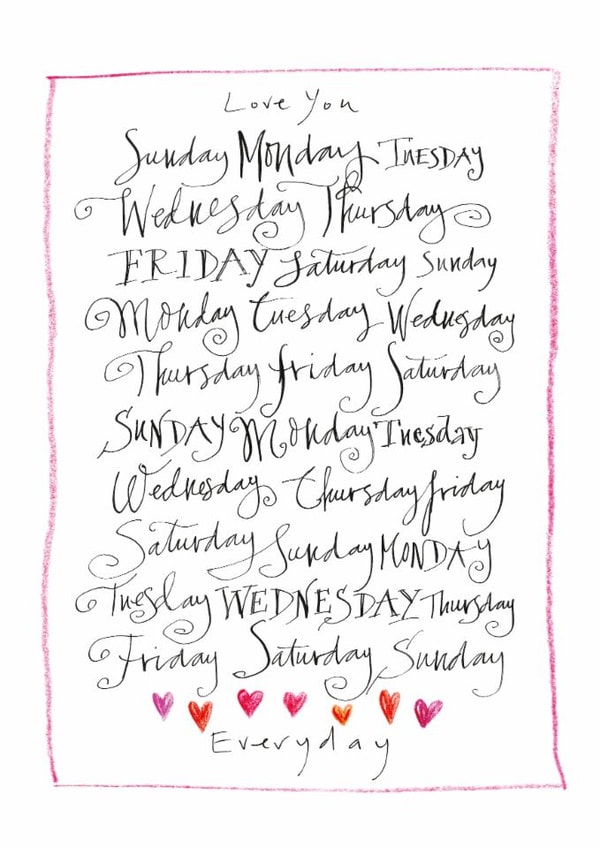 Love You
Sunday Monday TUESDAY
Wednesday Thursday
FRIDAY Saturday Sunday
Monday tuesday Wednesday
Thursday friday Saturday
SUNDAY Monday Tuesday
Wednesday thursday friday
Saturday Sunday MONDAY
Tuesday WEDNESDAY Thursday
Friday Saturday Sunday
Everyday